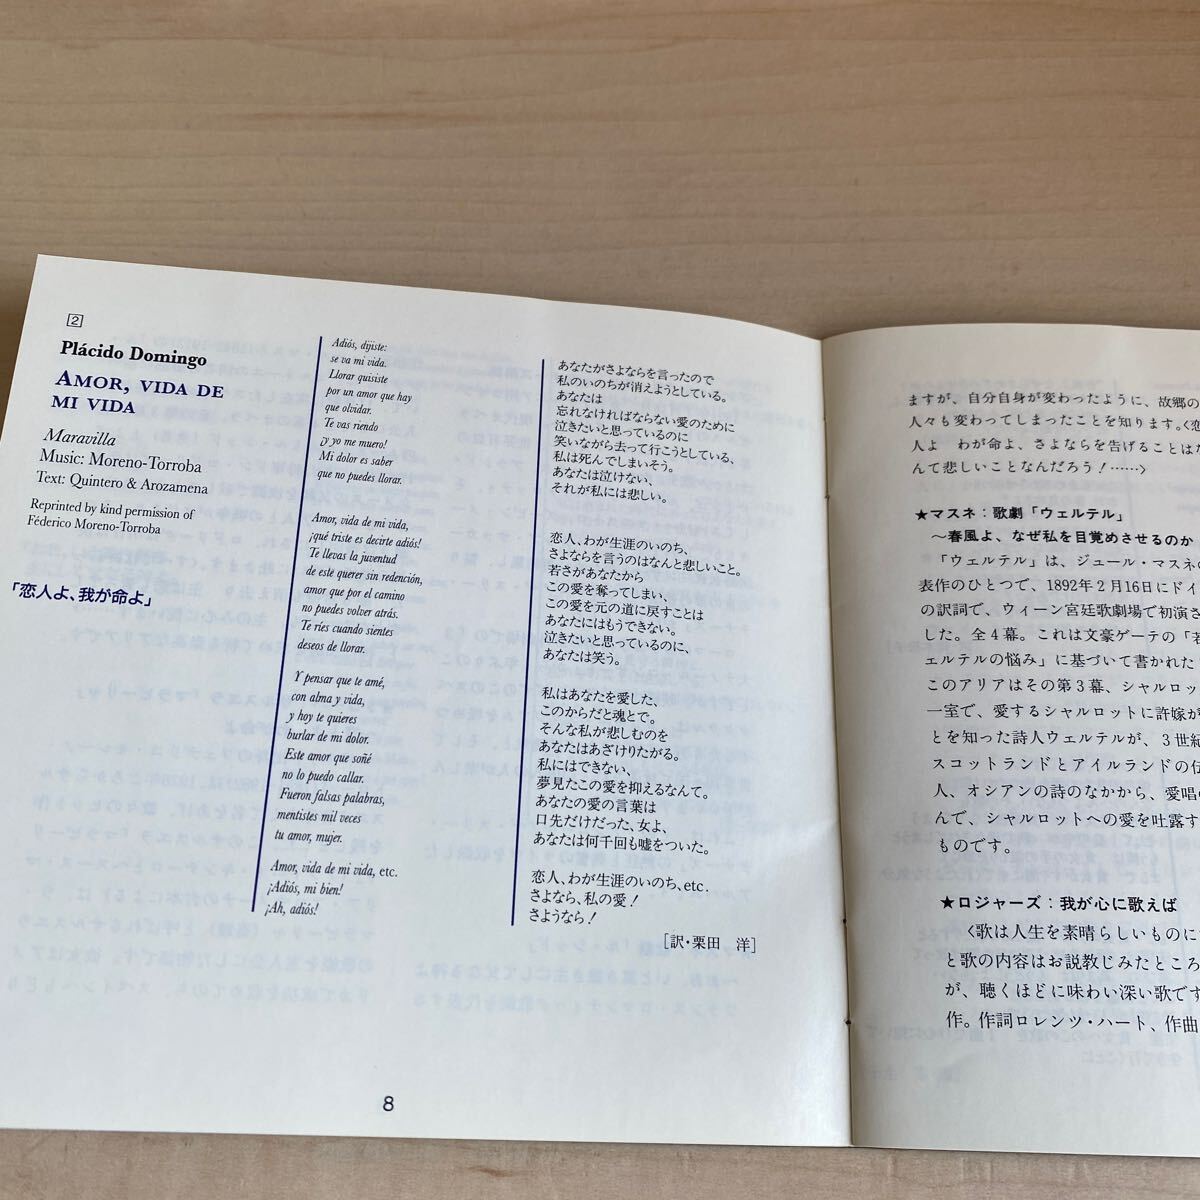 2
Plácido Domingo
AMOR, VIDA DE
MI VIDA
Maravilla
Music: Moreno-Torroba
Text: Quintero & Arozamena
Reprinted by kind permission of
Féderico Moreno-Torroba
「恋人よ、我が命よ」
Adiós, dijiste:
se va mi vida.
Llorar quisiste
por un amor que hay
que olvidar.
Te vas riendo
¡y yo me muero!
Mi dolor es saber
que no puedes llorar.
Amor, vida de mi vida,
¡qué triste es decirte adiós!
Te llevas la juventud
de este querer sin redención,
amor que por el camino
no puedes volver atrás.
Te ríes cuando sientes
deseos de llorar.
Y pensar que te amé,
con alma y vida,
y hoy te quieres
burlar de mi dolor.
Este amor que soñé
no lo puedo callar.
Fueron falsas palabras,
mentistes mil veces
tu amor, mujer.
Amor, vida de mi vida, etc.
¡Adiós, mi bien!
¡Ah, adiós!
あなたがさよならを言ったので
私のいのちが消えようとしている。
あなたは
忘れなければならない愛のために
泣きたいと思っているのに
笑いながら去って行こうとしている、
私は死んでしまいそう。
あなたは泣けない、
それが私には悲しい。
恋人、わが生涯のいのち、
さよならを言うのはなんと悲しいこと。
若さがあなたから
この愛を奪ってしまい、
この愛を元の道に戻すことは
あなたにはもうできない。
泣きたいと思っているのに、
あなたは笑う。
私はあなたを愛した、
このからだと魂とで。
そんな私が悲しむのを
あなたはあざけりたがる。
私にはできない、
夢見たこの愛を抑えるなんて。
あなたの愛の言葉は
口先だけだった、女よ、
あなたは何千回も嘘をついた。
恋人、わが生涯のいのち、etc.
さよなら、私の愛！
さようなら！
[訳・栗田 洋]
8
ますが、自分自身が変わったように、故郷の
人々も変わってしまったことを知ります。〈恋
人よ わが命よ、さよならを告げることはな
んて悲しいことなんだろう！……〉
★マスネ：歌劇「ウェルテル」
～春風よ、なぜ私を目覚めさせるのか
「ウェルテル」は、ジュール・マスネの
表作のひとつで、1892年2月16日にドイ
の訳詞で、ウィーン宮廷歌劇場で初演さ
した。全4幕。これは文豪ゲーテの「若
ェルテルの悩み」に基づいて書かれた
このアリアはその第3幕、シャルロッ
一室で、愛するシャルロットに許嫁が
とを知った詩人ウェルテルが、3世紀
スコットランドとアイルランドの伝
人、オシアンの詩のなかから、愛唱
んで、シャルロットへの愛を吐露す
ものです。
★ロジャーズ：我が心に歌えば
〈歌は人生を素晴らしいものに
と歌の内容はお説教じみたところ
が、聴くほどに味わい深い歌です
作。作詞ロレンツ・ハート、作曲